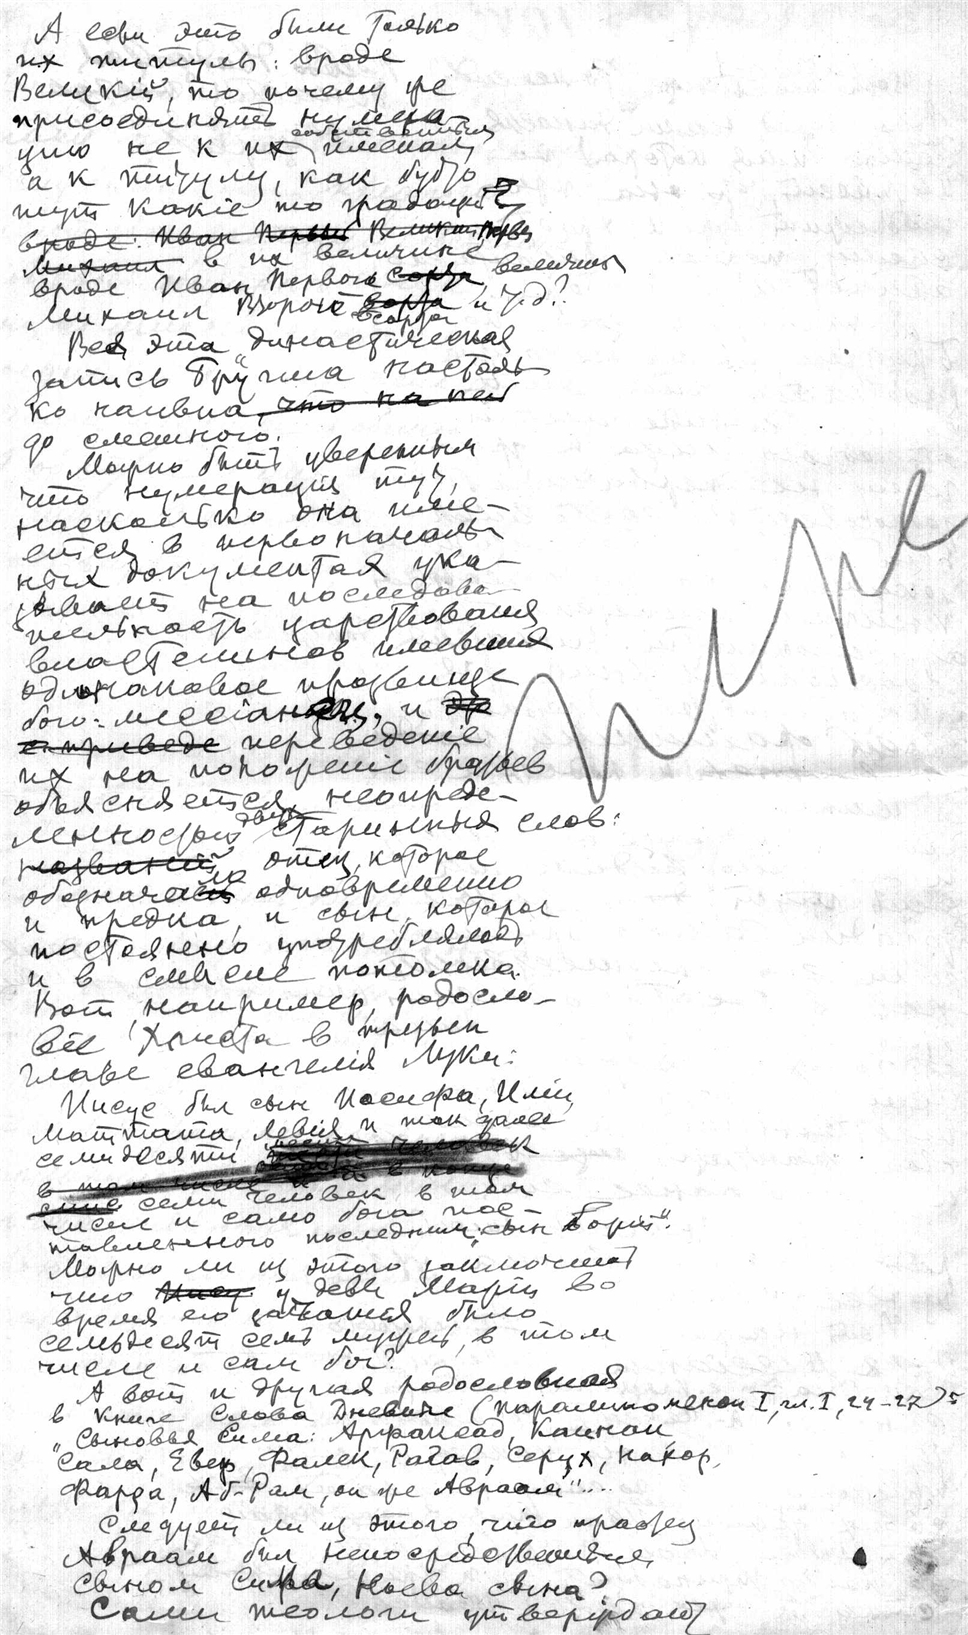 А если это были только
их титулы: вроде
Великій, то почему же
присоединять нумера
цию не к их собственным именам,
а к титулу, как будто
тут какіе то градаціи
вроде: Иван Первый Великий, Первый
Михаил в их величине
вроде Иван Первого сорта величины
Михаил Второго сорта и т.д.?
Вся эта династическая
запись Бругша настоль
ко наивна, что на ней
до смешного.
Можно быть уверенным
что нумерация тут,
насколько она име-
ется в первоначаль-
ных документах ука-
зывает на последова-
тельность царствования
властелинов имевших
одинаковое прозвище
бого-мессіанец, и
переведеніе
их на положеніе братьев
объясняется неопреде-
ленностью двух старинных слов:
названий отец, которое
обозначало одновременно
и предка, и сын, которое
постоянно употреблялось
и в смысле потомка.
Вот например, родосло-
віе Христа в третьей
главе евангелія Луки:
Иисус был сын Иосифа, Иліи,
Маттата, Левія и так далее
семидесяти
семи человек в том
числе и само бога пос-
тавленного последним: „сын Божій“.
Можно ли из этого заключить
что у девы Маріи во
время его зачатия было
семьдесят семь мужей, в том
числе и сам бог?
А вот и другая родословная
в книге Слова Дневные (Паралипоменон I, гл. I, 24-27):
„Сыновья Сима: Арфаксад, Каинан
Сала, Евер, Фалек, Рагав, Серух, Нахор,
Фарра, Аб-Рам, он же Авраам“...
Следует ли из этого, что праотец
Авраам был непосредственным
сыном Сима, Ноева сына?
Сами теологи утверждают